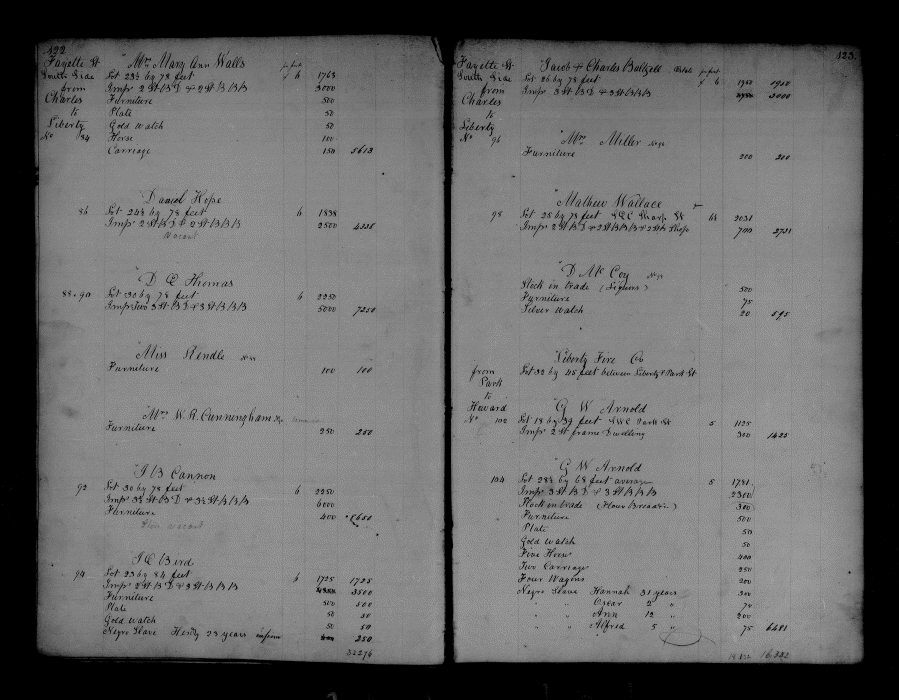 422
Fayette St Mrs Mary Ann Walls per foot
South Side Lot 23½ by 78 feet 6 1763
from Imps 2 St B D & 2 St B B B 3000
Charles Furniture 500
to Plate 50
Liberty Gold Watch 50
No 84 Horse 100
Carriage 150 5613
Daniel Hope
86 Lot 24½ by 78 feet 6 1838
Imps 2 St B D & 2 St B B B 2500 4338
Vacant
D C Thomas
88 & 90 Lot 30 by 78 feet 6 2250
Imps two 3 St B D & 3 St B B B 5000 7250
Miss Nendle
Furniture 100 100
Mrs W. R. Cunningham
Furniture 250 250
J B Cannon
92 Lot 30 by 78 feet 6 2250
Imps 3½ St B D & 3½ St B B B 6000
Furniture 400 8650
vacant
J C Bird
94 Lot 23 by 84 feet 6 1725 1725
Imps 2 St B D & 3 St B B B 3500
Furniture 500 500
Plate 50 50
Gold Watch 50 50
Negro Slave Henry 23 years infirm 250
32276
423
Fayette St Jacob & Charles Baltzell per foot
South Side Lot 26 by 78 feet 6 1950 1950
from Imps 3 St B D & 3 St B B B 3000
Charles
to
Liberty
No 96 Mrs Miller
Furniture 200 200
Mathew Wallace
98 Lot 26 by 78 feet S E C Sharp St 2031
Imps 2 St B D & 2 St B B B & 2 St B Shop 700 2731
D. McCoy
Stock in trade (Liquors) 500
Furniture 75
Silver Watch 20 595
Liberty Fire Co
from Lot 33 by 45 feet between Liberty & Park St
Park
to
Howard G W Arnold
No 100 Lot 18 by 39 feet S W C Park St 5 1125
Imps 2 St frame Dwelling 300 1425
G W Arnold
104 Lot 28½ by 68 feet average 5 1781
Imps 3 St B D & 3 St B B B 2300
Stock in trade 300
Furniture 500
Plate 50
Gold Watch 50
Five Horse 400
Two Carriage 250
Four Wagons 200
Negro Slave Hannah 31 years 300
" " Cesar 2 " 75
" " Ann 12 " 200
" " Alfred 5 " 75 6481
16382